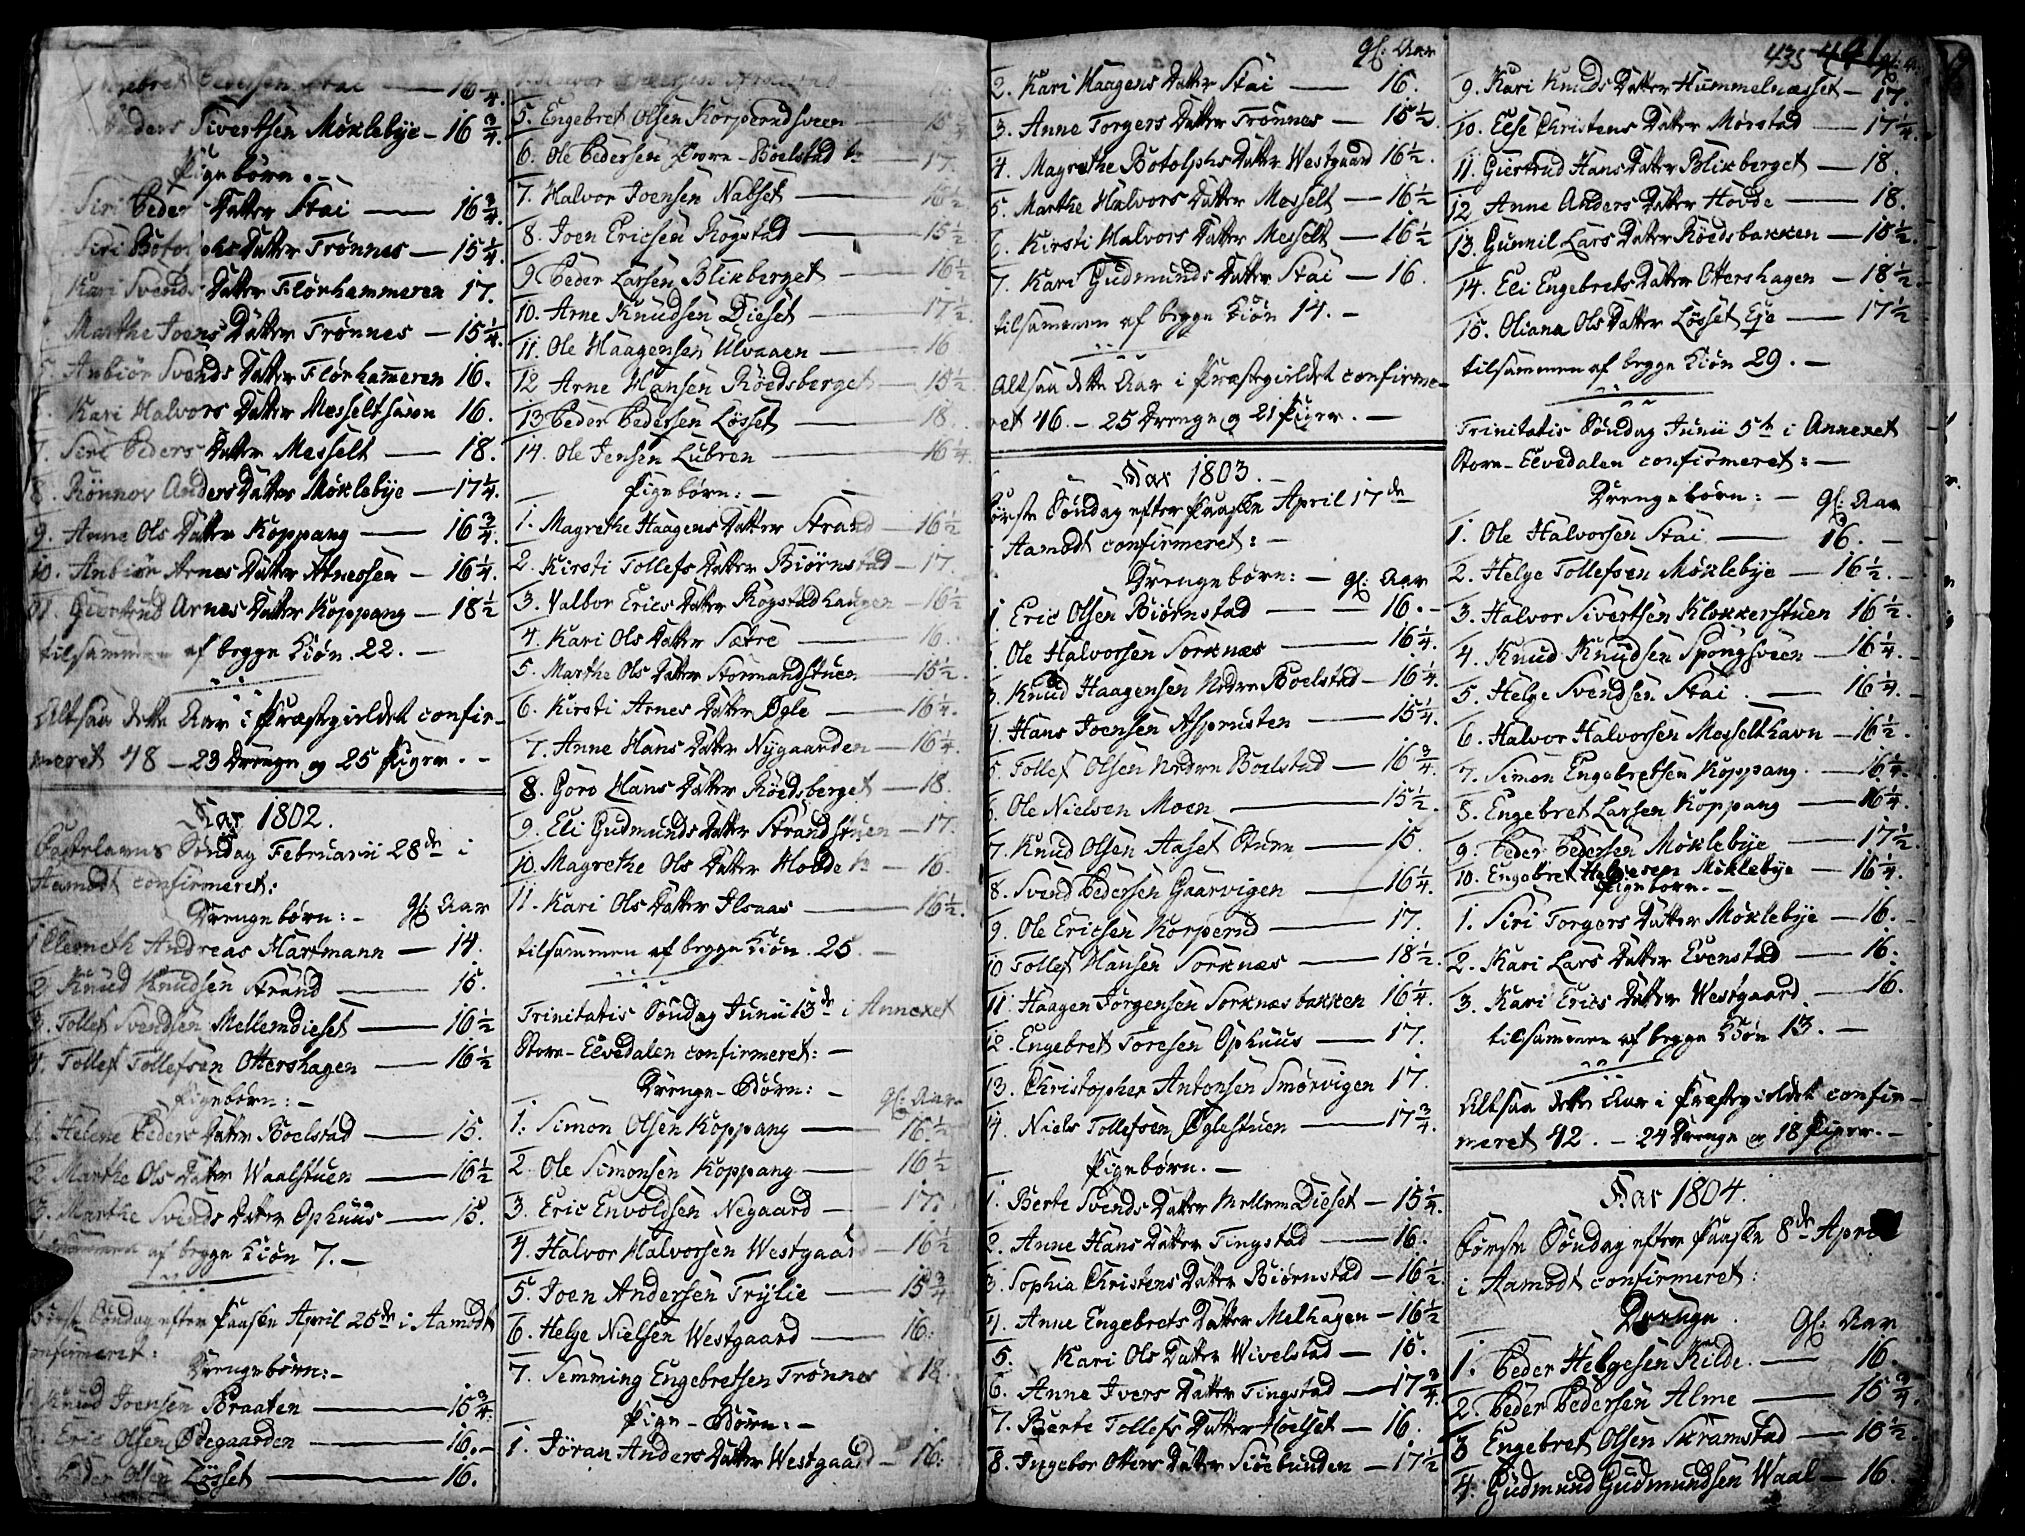 Engebret Pedersen Stai — 16 1/4.
Anders Sivertsen Møklebye — 16 3/4.
Pigebørn. —
Siri Peders Datter Stai — 16 3/4.
Siri Botolphs Datter Trønnes — 15 1/4.
Kari Svends Datter Flørhammeren 17.
Marthe Joens Datter Trønnes — 15 1/4.
5. Anbiør Svends Datter Flørhameren 16.
6. Kari Halvors Datter Messelt 16.
7. Siri Peders Datter Messelt — 18.
8. Rønnov Anders Datter Møklebye — 17 1/4.
9. Anne Ols Datter Koppang — 16 3/4.
10. Anbiør Arnes Datter Atneosen — 16 1/4.
11. Giertrud Arnes Datter Koppang — 18 1/2
tilsammen af begge Kiøn. 22. —
Altsaa dette Aar i Præstegieldet confir-
meret 48 — 23 Drenge og 25 Piger. —
Aar 1802.
Fastelavns Søndag Februarii 28de i
Aamodt confirmeret:
Drengebørn: — gl: Aar
1 Clemeth Andreas Hartmann — 14.
2 Knud Knudsen Strand — 15.
3. Tollef Svendsen Mellemdieset — 16 1/2
4. Tollef Tollefsen Ottershagen — 16 1/2
Pigebørn: —
1. Helene Peders Datter Boelstad — 15.
2. Marthe Ols Datter Waalstuen — 16 1/2
3. Marthe Svends Datter Ophuus — 15.
tilsammen af begge Kiøn 7. —
Første Søndag efter Paaske April 25de i Aamodt
confirmeret:
Drengebørn: —
1. Knud Joensen Braaten — 15 3/4.
2. Eric Olsen Ødegaarden — 16. —
3. Peder Olsen Løsset — 16.
5. Engebret Olsen Korperudsveen — 15 3/4
6. Ole Pedersen Boelstad — 17
7. Halvor Joensen Nabset — 16 1/2
8. Joen Ericsen Rogstad — 15 1/2
9. Peder Larsen Blikberget — 16 1/2
10. Arne Knudsen Dieset — 17 1/2.
11. Ole Haagensen Ulvaaen — 16
12 Arne Hansen Røedsberget — 15 1/2
13 Peder Pedersen Løsset — 18.
14. Ole Jensen Lubren — 16 1/4
Pigebørn: —
1. Magrethe Haagens Datter Strand — 16 1/2
2. Kirsti Tollefs Datter Biørnstad — 17.
3. Valbor Erics Datter Rogstadhaugen — 16 1/2
4. Kari Ols Datter Sætre — 16.
5. Marthe Ols Datter Stormandstuen — 15 1/2.
6. Kirsti Arnes Datter Øgle — 16 1/4.
7. Anne Hans Datter Nygaarden — 16 1/4.
8. Goro Hans Datter Røedsberget — 18.
9. Eli Gudmunds Datter Strandstuen — 17.
10. Magrethe Ols Datter Hovde — 16.
11. Kari Ols Datter Ilsaas — 16 1/2.
tilsammen af begge Kiøn. 25. —
Trinitatis Søndag Junii 13de i Annexet
Store-Elvedalen confirmeret: —
Drenge-Børn: — gl: Aar
1. Simon Olsen Koppang — 16 1/2
2. Ole Simonsen Koppang — 16 1/2
3. Eric Envoldsen Negaard — 17.
4. Halvor Halvorsen Westgaard — 16 1/2
5. Joen Andersen Trylie — 15 3/4
6. Helge Nielsen Westgaard — 16.
7. Semming Engebretsen Trønnes 18.
Pige-Børn: —
1. Jøran Anders Datter Westgaard — 16.
gl: Aar
2. Kari Haagens Datter Stai — 16.
3. Anne Torgers Datter Trønnes — 15 1/2.
4. Magrethe Botolphs Datter Westgaard 16 1/2.
5. Marthe Halvors Datter Messelt — 16 1/2
6. Kirsti Halvors Datter Messelt — 16 1/2
7. Kari Gudmunds Datter Stai — 16.
tilsammen af begge Kiøn 14. —
Altsaa dette Aar i Præstegieldet confirme-
ret 46. — 25 Drenge og 21 Piger. —
Aar 1803. —
Første Søndag efter Paaske April 17de
i Aamodt confirmeret: —
Drengebørn: — gl: Aar
1 Eric Olsen Biørnstad — 16. —
2. Ole Halvorsen Sorknæs — 16 1/4
3. Knud Haagensen Nedre Boelstad — 16 1/4.
4 Hans Joensen Asprusten — 15 1/4.
5. Tollef Olsen Nedre Boelstad — 16 3/4.
6. Ole Nielsen Moen — 15 1/2.
7. Knud Olsen Aaset — 15.
8. Svend Pedersen Gaarvigen — 16 1/4.
9. Ole Ericsen Korperud — 17.
10 Tollef Hansen Sorknæs — 18 1/2.
11. Haagen Jørgensen Sorknæsbakken 16 1/4.
12. Engebret Toresen Ophuus — 17.
13. Christopher Antonsen Smørvigen 17.
14. Niels Tollefsen Øglestuen — 17 3/4.
Pigebørn. —
1. Berte Svends Datter MellemDieset — 15 1/4.
2. Anne Hans Datter Tingstad — 16.
3. Sophia Christens Datter Biørnstad — 16 1/2.
4. Anne Engebrets Datter Melhagen — 16 1/2
5. Kari Ols Datter Wivelstad — 16.
6. Anne Ivers Datter Tingstad — 17 3/4.
7. Berte Tollefs Datter Hoelset — 16.
8. Ingebor Otters Datter Siøebunden — 17 1/2
435 441 gl: A.
9. Kari Knuds Datter Hummelnæsset — 17.
10. Else Christens Datter Morstad — 17 1/4.
11. Giertrud Hans Datter Blikberget — 18.
12 Anne Anders Datter Hovde — 18.
13. Gunnil Lars Datter Røedsbakken — 15 1/2.
14. Eli Engebrets Datter Ottershagen — 18 1/2.
15. Oliana Ols Datter Løsset Eje — 17 1/2
tilsammen af begge Kiøn 29. —
Trinitatis Søndag Junii 5te i Annexet
Store-Elvedalen confirmeret: —
Drengebørn: — gl: Aar
1. Ole Halvorsen Stai — 16. —
2. Helge Tollefsen Møklebye — 16 1/2. —
3. Halvor Sivertsen Klokkerstuen 16 1/2.
4. Knud Knudsen Spongsveen — 16 1/4.
5. Helge Svendsen Stai — 16 1/4.
6. Halvor Halvorsen Messelthavn — 16 1/2.
7. Simon Engebretsen Koppang — 16 1/4.
8. Engebret Larsen Koppang — 16 1/4.
9. Peder Pedersen Møklebye — 17 1/2.
10. Engebret Helgesen Møklebye — 16 1/4.
Pigebørn. —
1. Siri Torgers Datter Møklebye — 16.
2. Kari Lars Datter Evenstad — 16.
3. Kari Erics Datter Westgaard — 16.
tilsammen af begge Kiøn 13. —
Altsaa dette Aar i Præstegieldet confir-
meret 42. — 24 Drenge og 18 Piger. —
Aar 1804.
Første Søndag efter Paaske 8de April
i Aamodt confirmeret:
Drenge. gl: Aar
1. Peder Helgesen Kilde. — 16.
2. Peder Pedersen Alme — 15 3/4.
3 Engebret Olsen Skramstad — 15 1/2.
4. Gudmund Gudmundsen Waal — 16.